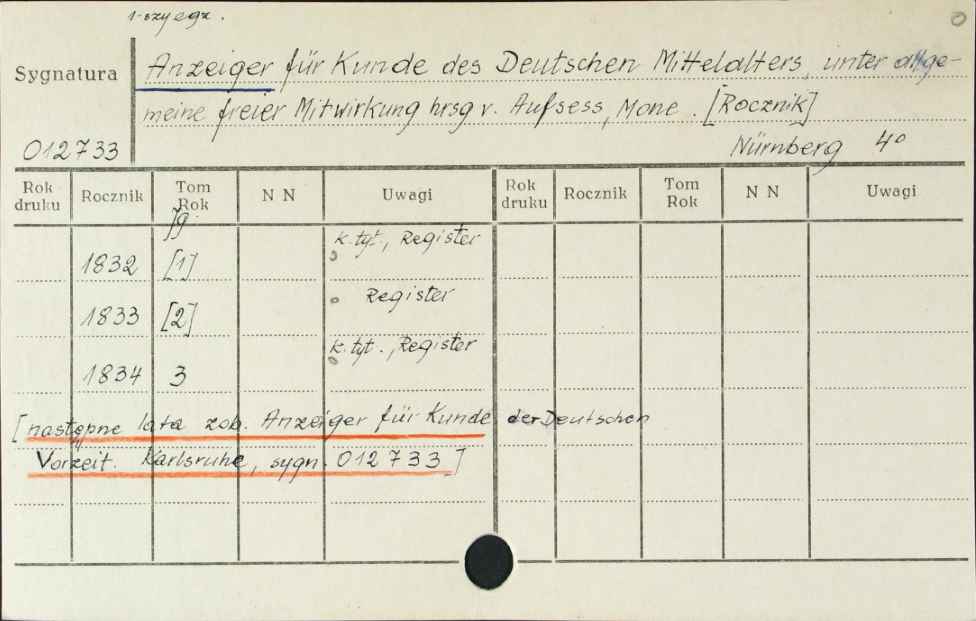 1-szy egz.
Sygnatura
Anzeiger für Kunde des Deutschen Mittelalters, unter allge-
meine freier Mitwirkung hrsg v. Aufsess, Mone. [Rocznik]
012733
Nürnberg 4°
Rok druku Rocznik Tom Rok N N Uwagi Rok druku Rocznik Tom Rok N N Uwagi
Jg.
k. tyt., Register
1832 [1]
Register
1833 [2]
k. tyt., Register
1834 3
[następne lata zob. Anzeiger für Kunde der Deutschen
Vorzeit. Karlsruhe, sygn. 012733]